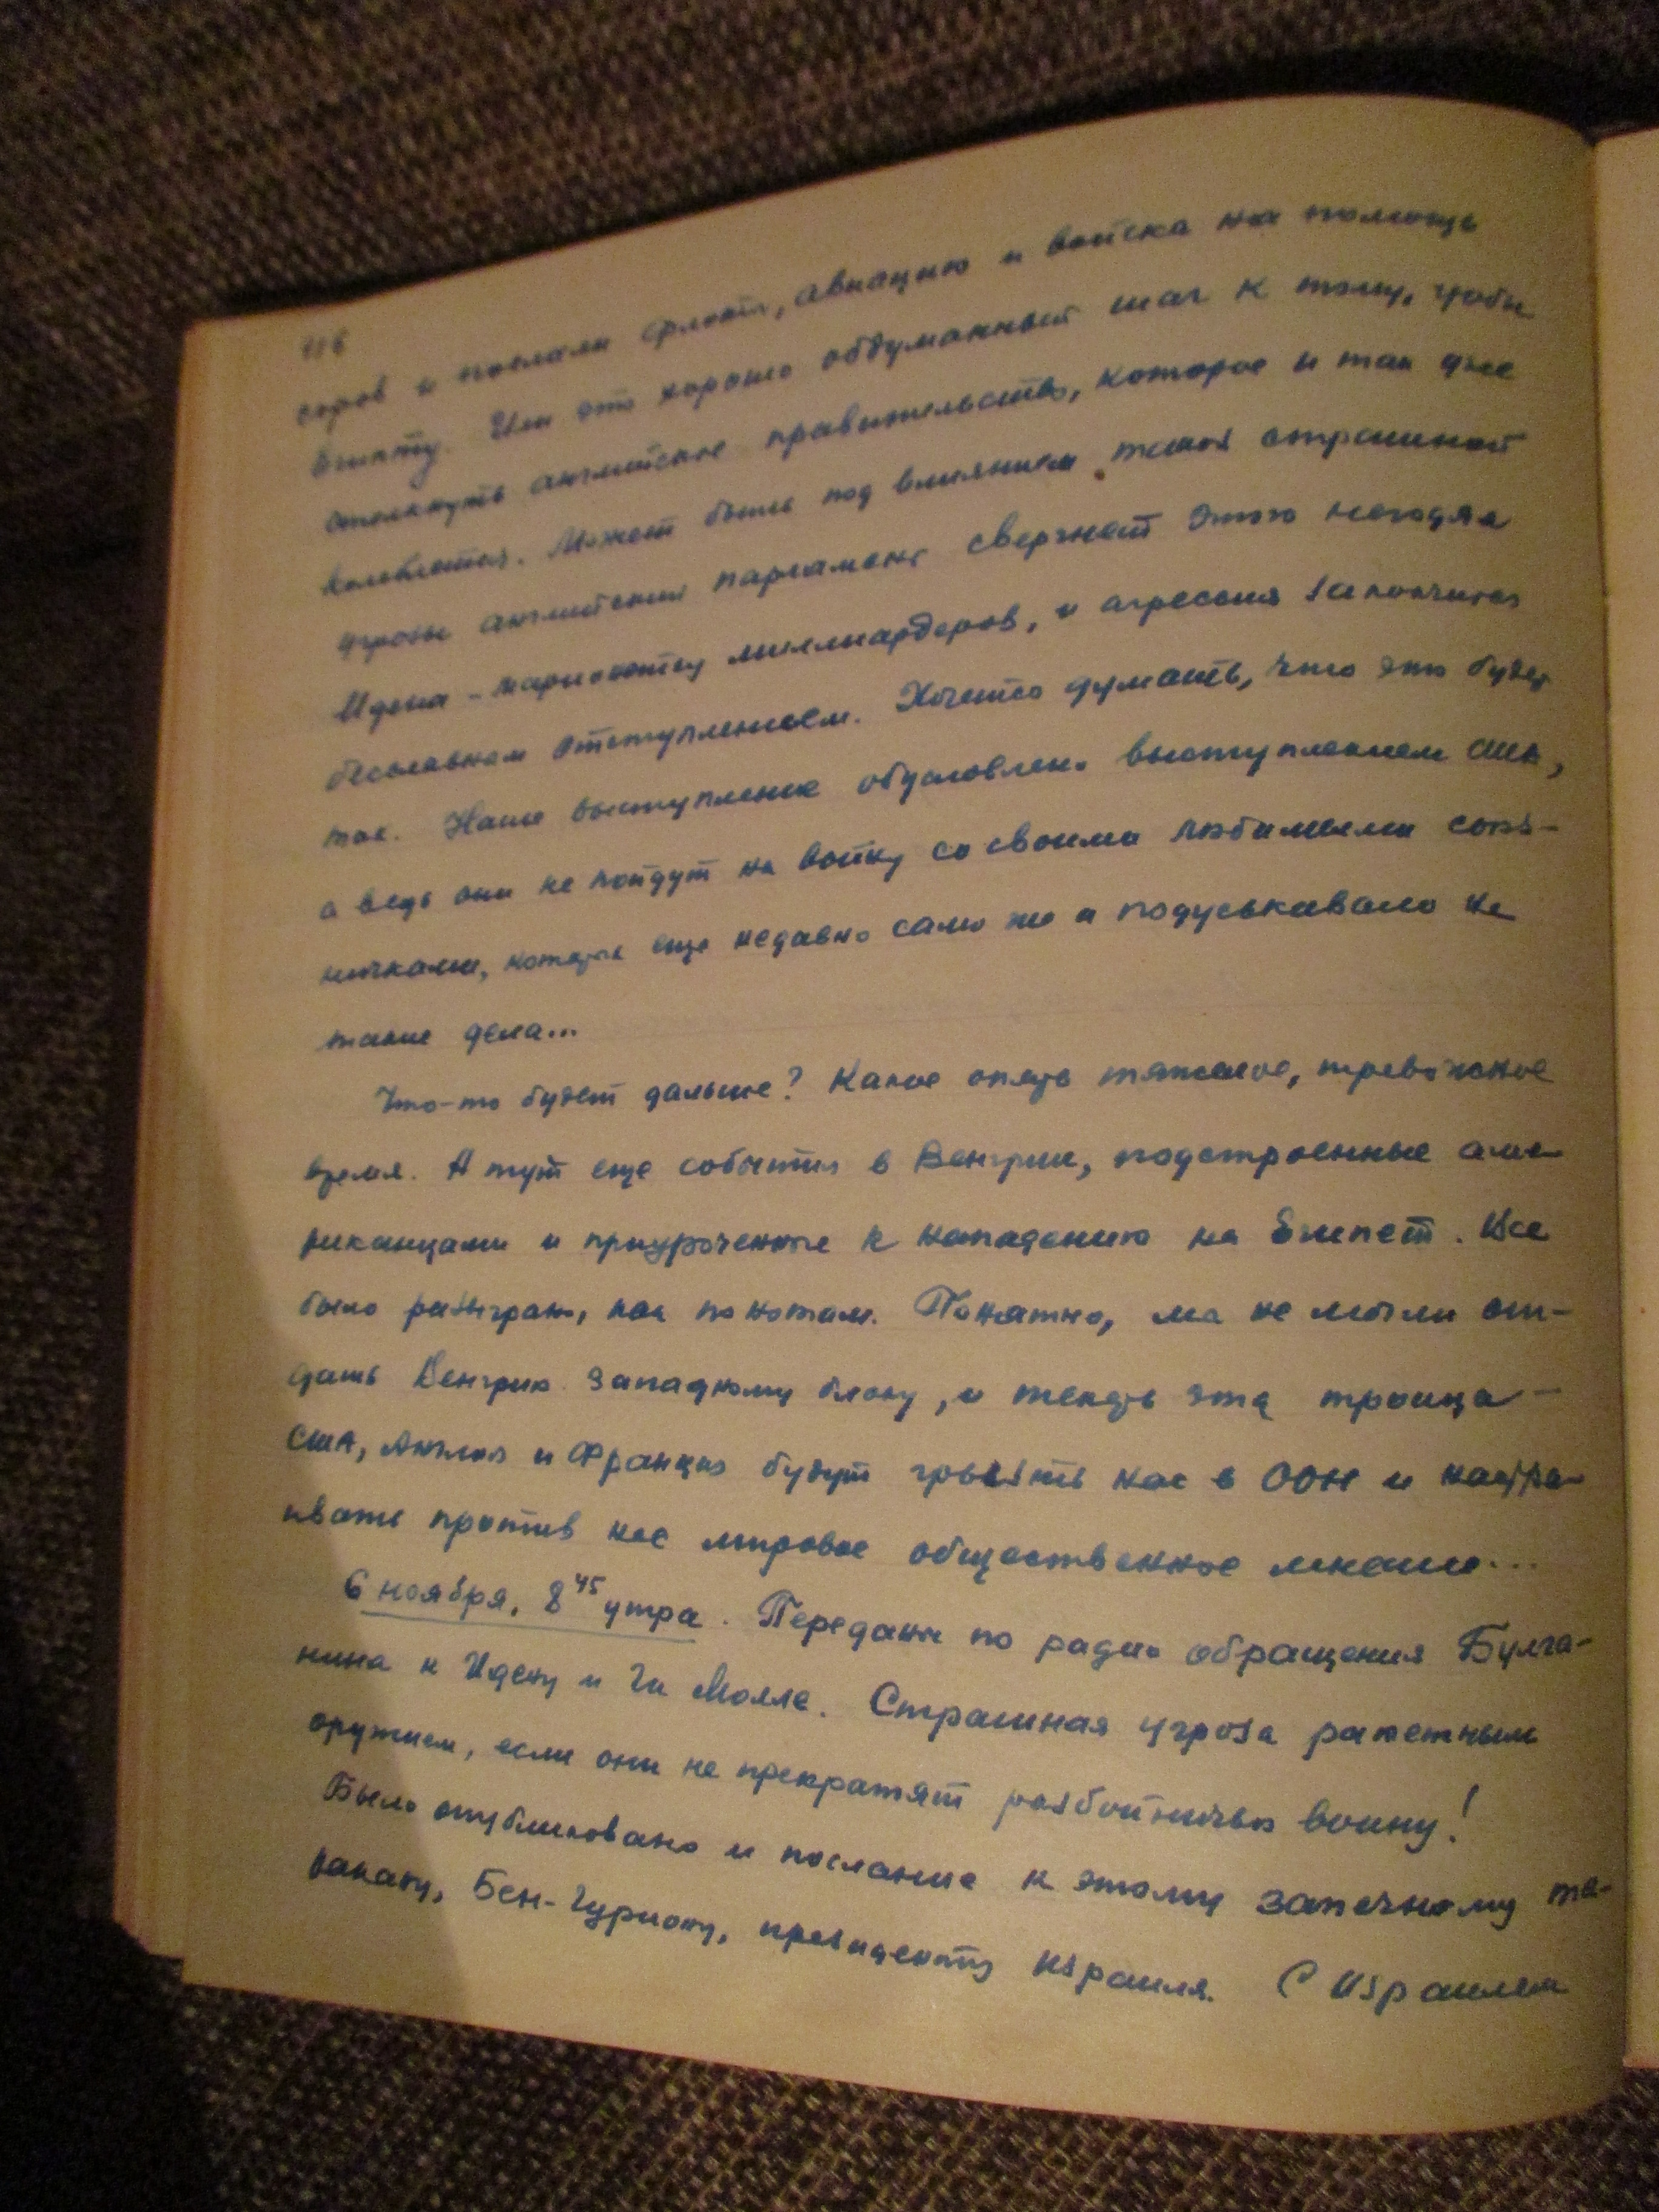 116
соров и послали флот, авиацию и войска на помощь
Египту. Или это хорошо обдуманный шаг к тому, чтобы
столкнуть английское правительство, которое и так уже
колеблется. Может быть под влиянием такой страшной
угрозы английский парламент свергнет этого негодяя
Идена - марионетку миллиардеров, и агрессия закончится
бесславным отступлением. Хочется думать, что это будет
так. Наше выступление обусловлено выступлением США,
а ведь они не пойдут на войну со своими любимыми союз-
ничками, которых еще недавно само же и подуськивало на
такие дела...
Что-то будет дальше? Какое опять тяжелое, тревожное
время. А тут еще события в Венгрии, подстроенные аме-
риканцами и приуроченные к нападению на Египет. Все
было разыграно, как по нотам. Понятно, мы не могли от-
дать Венгрию западному блоку, и теперь эта троица -
США, Англия и Франция будут грызть нас в ООН и настра-
ивать против нас мировое общественное мнение...
6 ноября, 8 45 утра. Переданы по радио обращения Булга-
нина к Идену и Ги Молле. Страшная угроза ракетным
оружием, если они не прекратят разбойничью войну!
Было опубликовано и послание к этому запечному та-
ракану, Бен-Гуриону, президенту Израиля. С Израилем